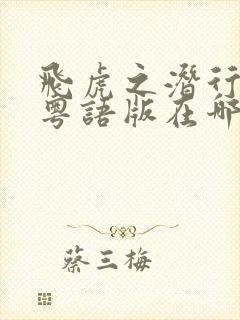 飛虎之潛行
粵語版在哪
蔡三梅